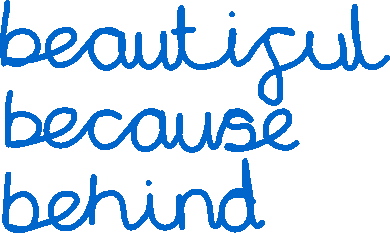 beautiful
because
behind